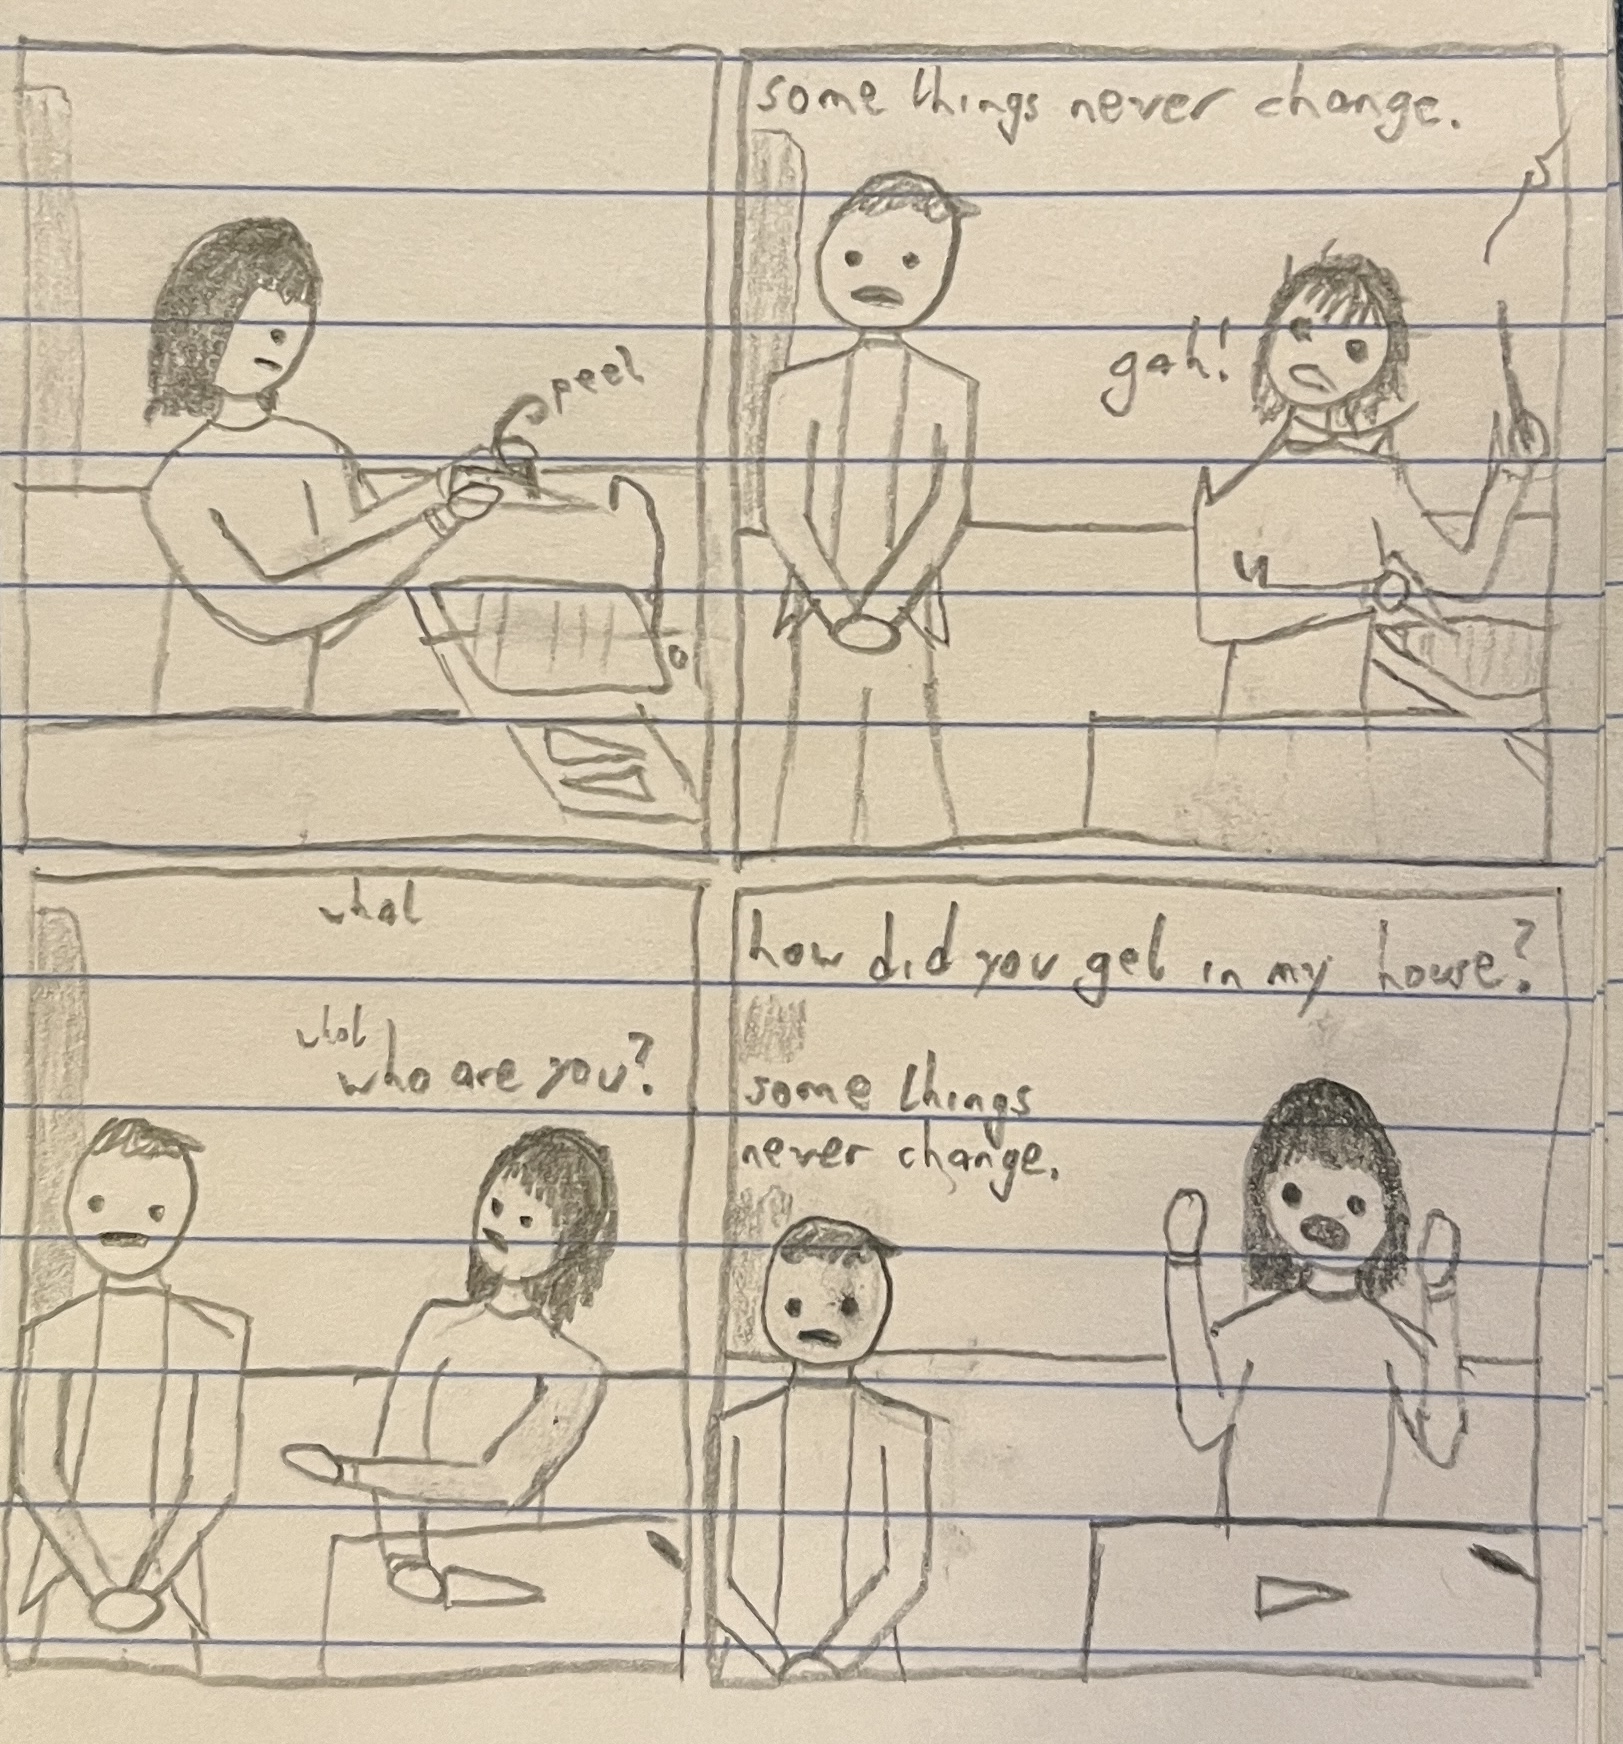 peel
some things never change.
gah!
what
what
who are you?
how did you get in my house?
some things
never change.